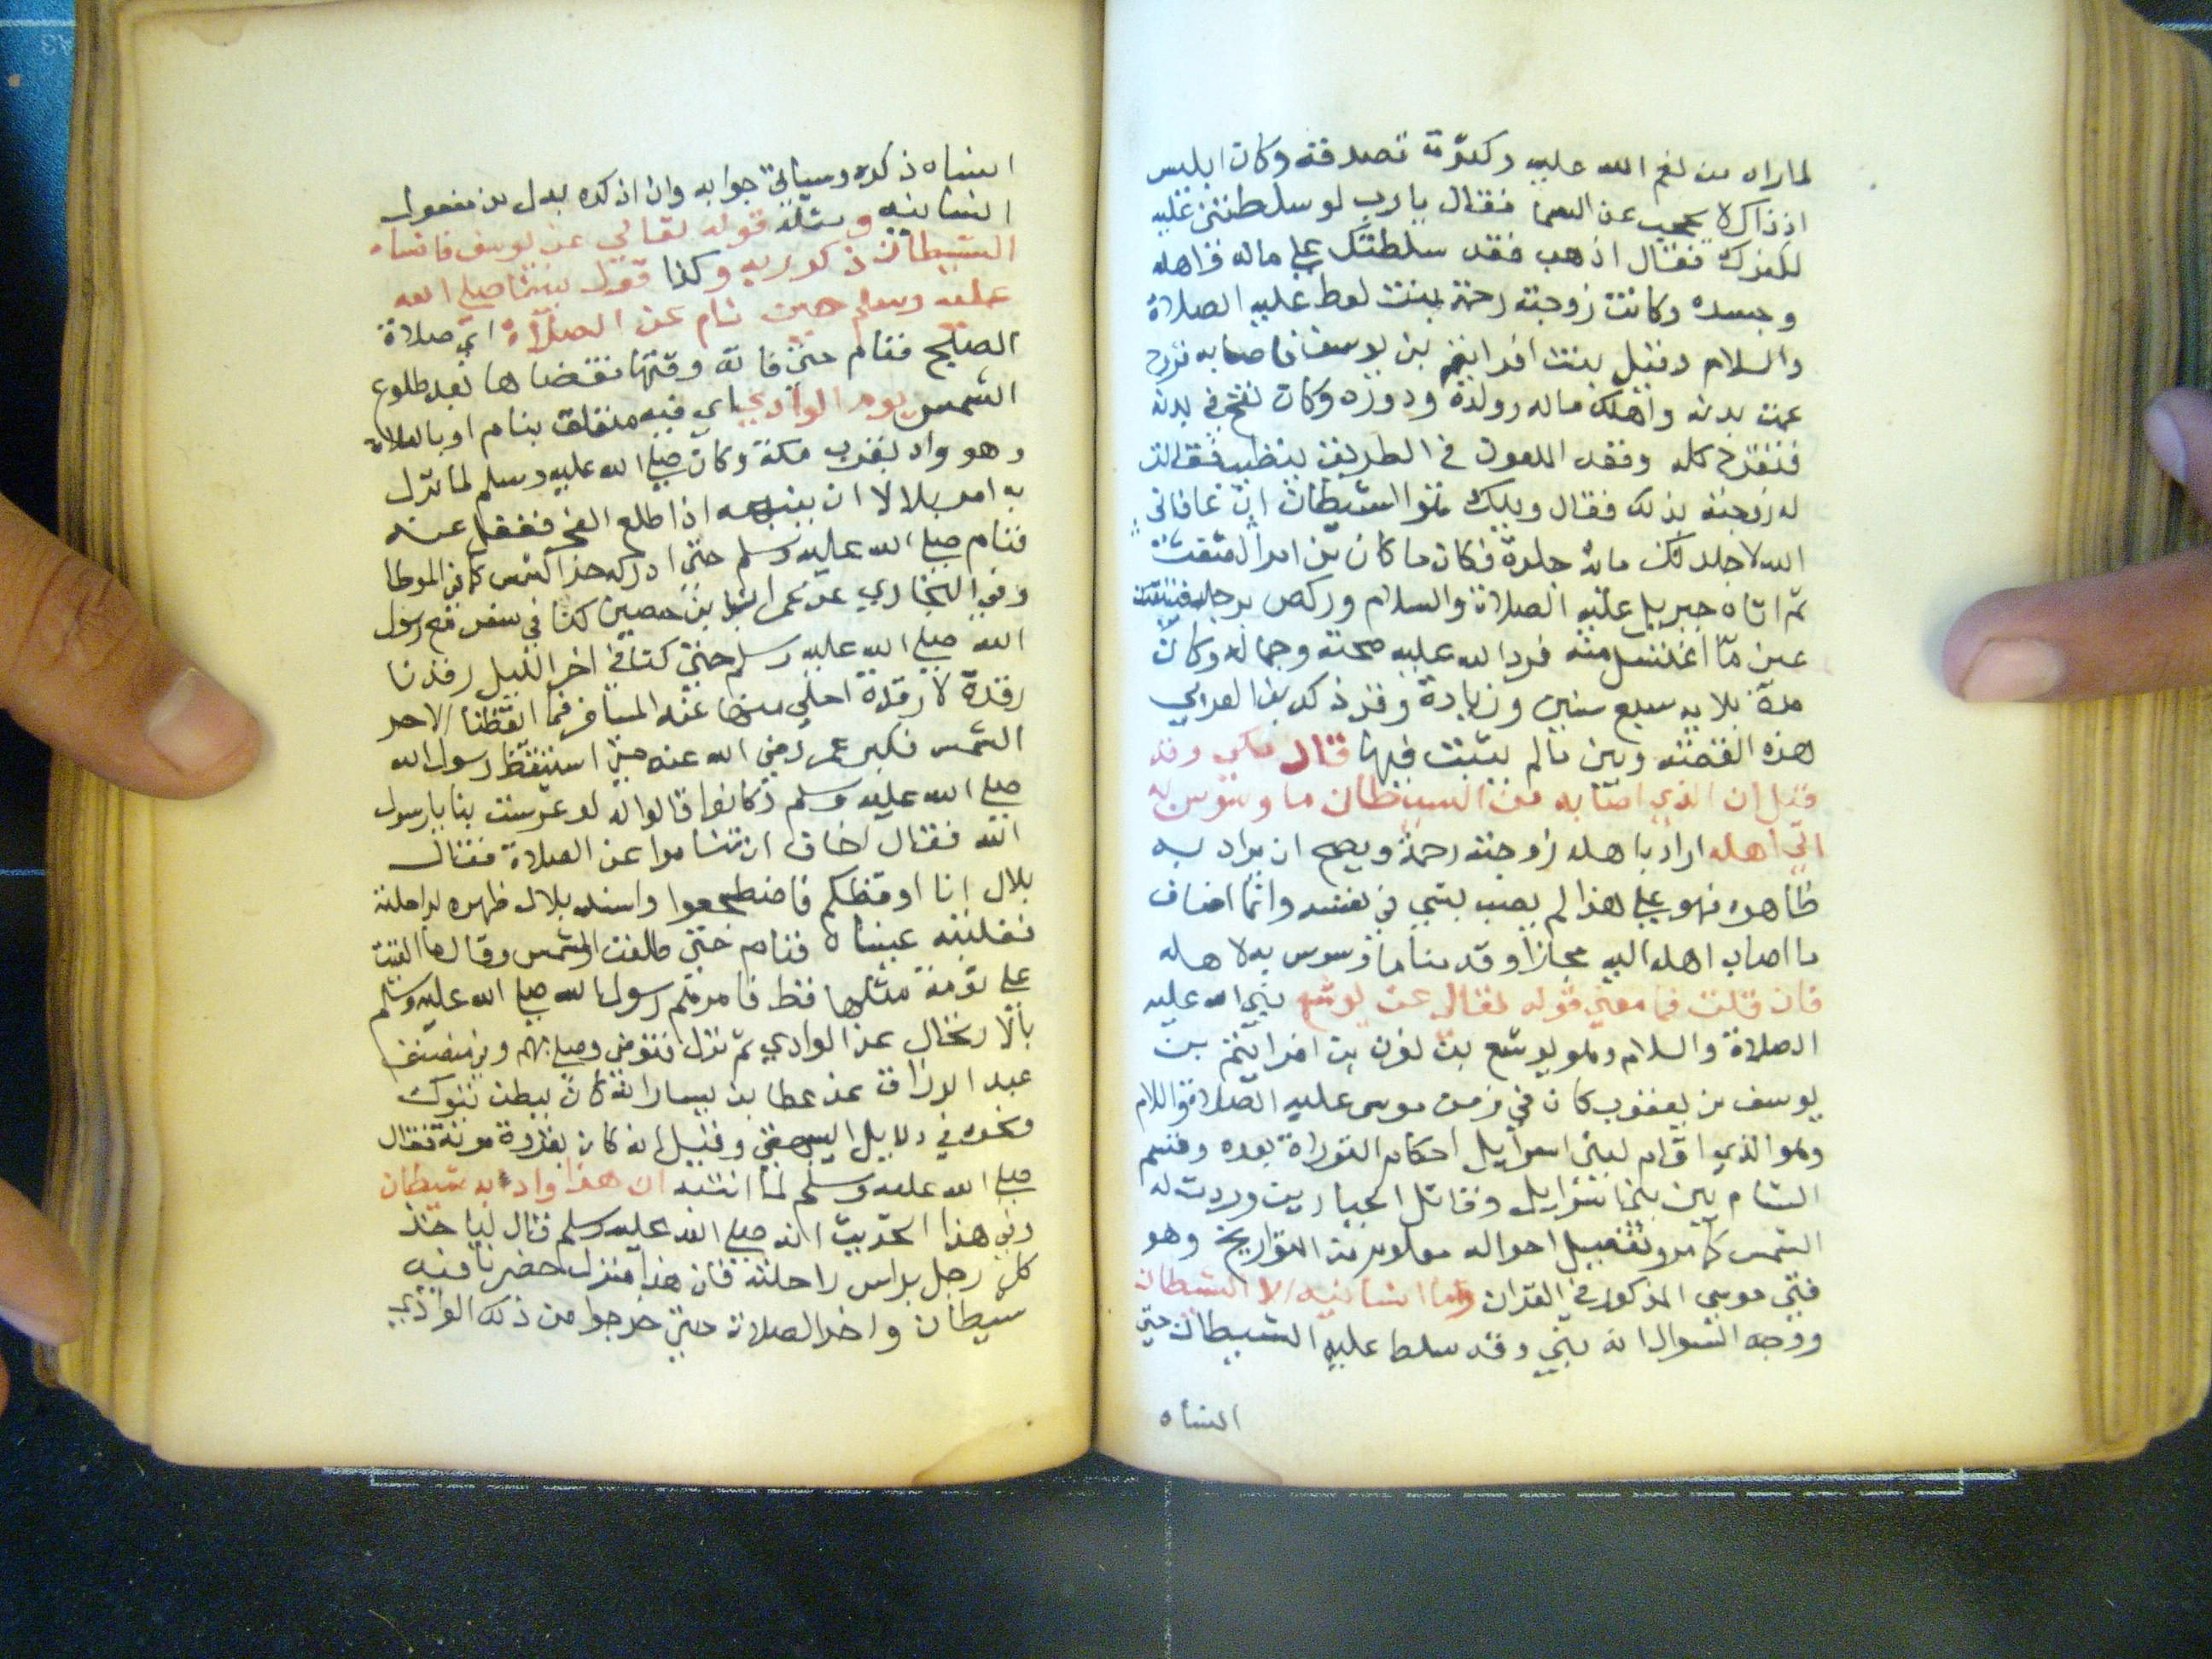 لما راه من نعم الله عليه وكثرة تصدقه وكان ابليس
اذ ذاك لا يحجب عن السما فقال يا رب لو سلطتني عليه
لكفرك فقال اذهب فقد سلطتك على ماله واهله
وجسده وكانت زوجته رحمة بنت لوط عليه الصلاة
والسلام وقيل بنت افراثيم بن يوسف فاصابه قروح
عمت بدنه واهلك ماله وولده ودوره وكان نفخ في بدنه
فتقرح كله وقعد الملعون في الطريق يتطبب فقالت
له زوجته بذلك فقال ويلك هو الشيطان ان عافاني
الله لاجلدنك مائة جلدة فكان ما كان من امر
ثم اتاه جبريل عليه الصلاة والسلام وركض برجله
عين ما اغتسل منه فرد الله عليه صحته وجماله وكان
مدة بلايه سبع سنين وزيادة وقد ذكر بن العربي
هذه القصة وبين ما لم يثبت فيها قال مكي وقد
قيل ان الذي اصابه من الشيطان ما وسوس به
الى اهله اراد باهله زوجته رحمة ويصح ان يراد به
ظاهره فهو على هذا لم يصب بشي في نفسه وانما اضاف
ما اصاب اهله اليه مجازا وقد منا ما وسوس به لاهله
فان قلت فما معنى قوله تعالى عن يوشع نبي الله عليه
الصلاة والسلام وهو يوشع بن نون بن افراثيم بن
يوسف بن يعقوب كان في زمن موسى عليه الصلاة والسلام
وهو الذي اقام لبني اسرايل احكام التوراة بعده وقسم
الشام بين بني اسرايل وقاتل الجبارين وردت له
الشمس كما مر وتفصيل احواله معلوم من التواريخ وهو
فتى موسى المذكور في القران وما انسانيه الا الشيطان
ووجه السوال انه نبي وقد سلط عليه الشيطان حتى
انساه
انساه ذكره وسياتي جوابه وان اذكره بدل من مفعول
انسانيه ومثله قوله تعالى عن يوسف فانساه
الشيطان ذكر ربه وكذا قول نبينا صلى الله
عليه وسلم حين نام عن الصلاة اي صلاة
الصبح فنام حتى فاته وقتها فقضاها بعد طلوع
الشمس يوم الوادي اي فيه متعلق بنام او بالصلاة
وهو واد بقرب مكة وكان صلى الله عليه وسلم لما نزل
به امر بلالا ان ينبهه اذا طلع الفجر فغفل عنه
فنام صلى الله عليه وسلم حتى ادركه حر الشمس كما في الموطا
وفي البخاري عن عمران بن حصين كنا في سفر مع رسول
الله صلى الله عليه وسلم حتى كنا في اخر الليل رقدنا
رقدة لا رقدة احلى منها عند المسافر فما ايقظنا الا حر
الشمس فكبر عمر رضي الله عنه حتى استيقظ رسول الله
صلى الله عليه وسلم وكانوا قالوا له لو عرست بنا يا رسول
الله فقال اخاف ان تناموا عن الصلاة فقال
بلال انا اوقظكم فاضطجعوا واسند بلال ظهره لراحلته
فغلبته عيناه فنام حتى طلعت الشمس وقال ما القيت
على نومة مثلها قط فامرهم رسول الله صلى الله عليه وسلم
بالارتحال عن الوادي ثم نزل فتوضى وصلى بهم وفي مصنف
عبد الرزاق عن عطا بن يسار انه كان ببطن تبوك
ونحوه في دلايل البيهقي وقيل انه كان بغزوة موتة فقال
صلى الله عليه وسلم لما انتبه ان هذا واد به شيطان
وفي هذا الحديث انه صلى الله عليه وسلم قال لياخذ
كل رجل براس راحلته فان هذا منزل حضرنا فيه
شيطان واخر الصلاة حتى خرجوا من ذلك الوادي